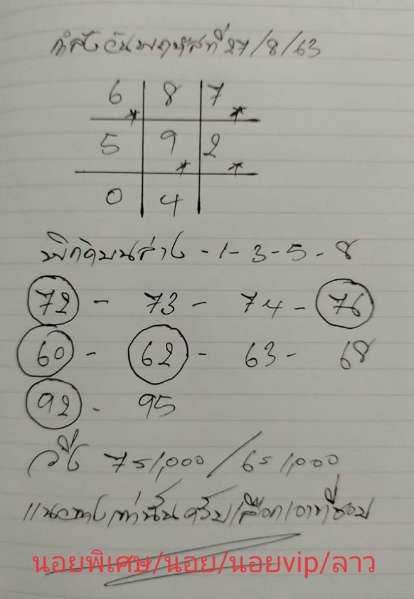 วันพฤหัสที่ 27/8/63
6 8 7
5 9 2
0 4
บนล่าง - 1 - 3 - 5 - 8
72 - 73 - 74 - 76
60 - 62 - 63 - 68
92 - 95
วิ่ง
แนวทางเท่านั้นครับ/เลือกเอาที่ชอบ
นอยพิเศษ/นอย/นอยvip/ลาว